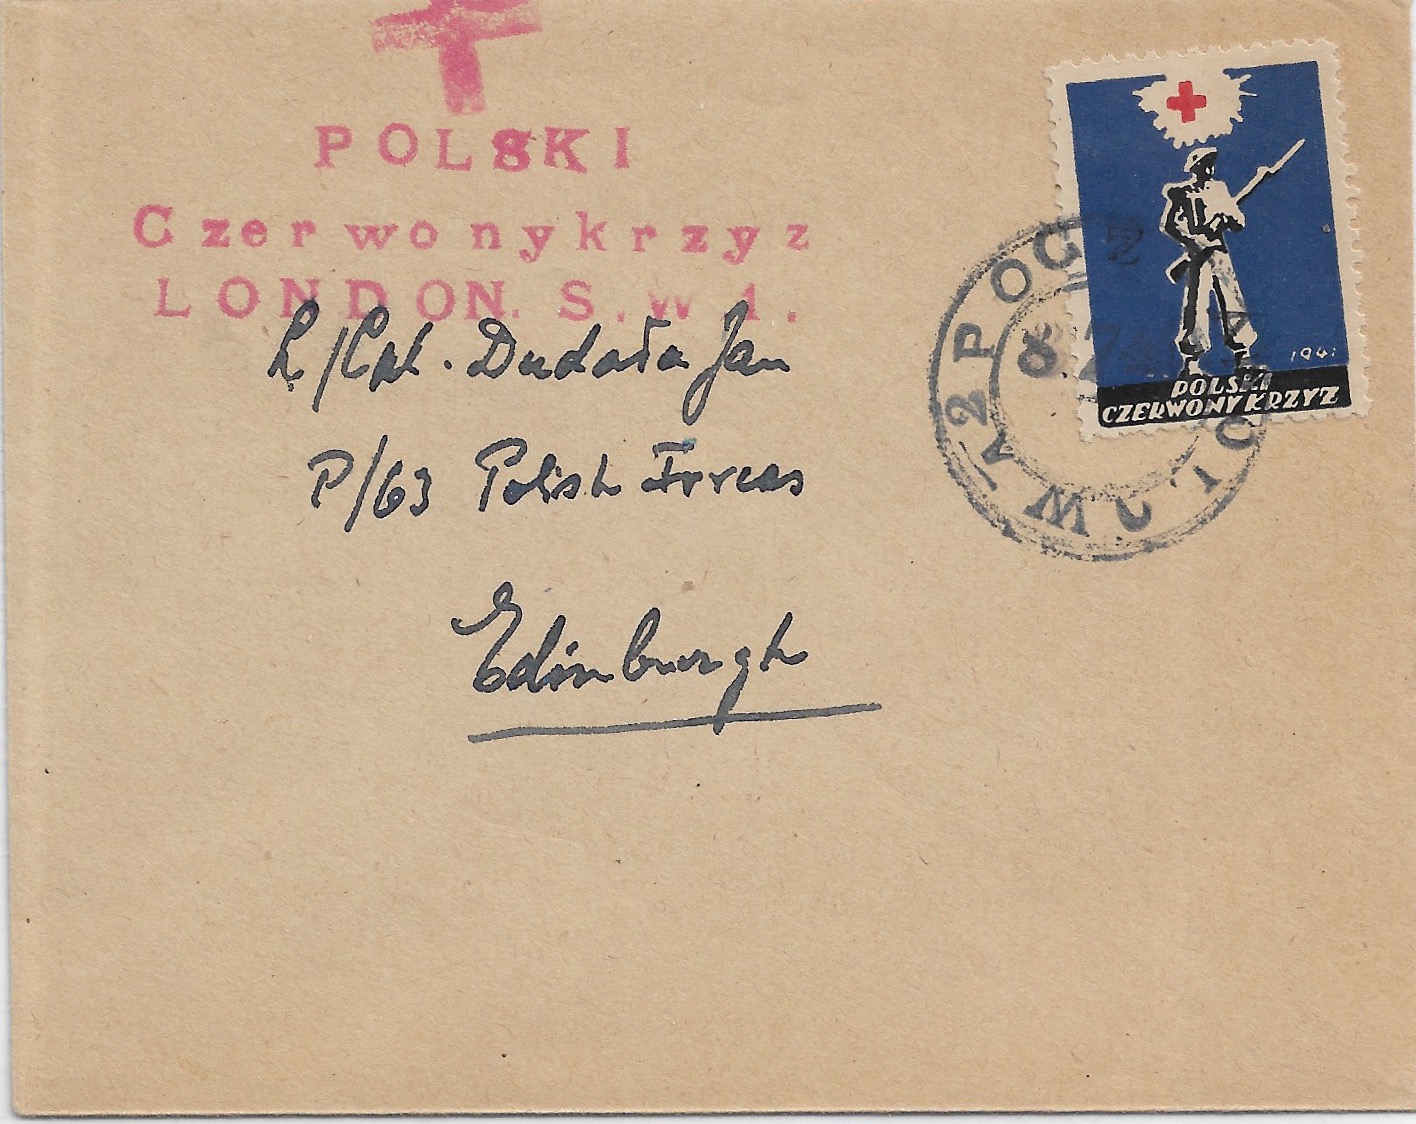 POLSKI
Czerwonykrzyz
LONDON. S.W 1.
L/Cpl. Dudała Jan
P/63 Polish Forces
Edinburgh
1941
POLSKI
CZERWONY KRZYZ
POCZTA POLOWA